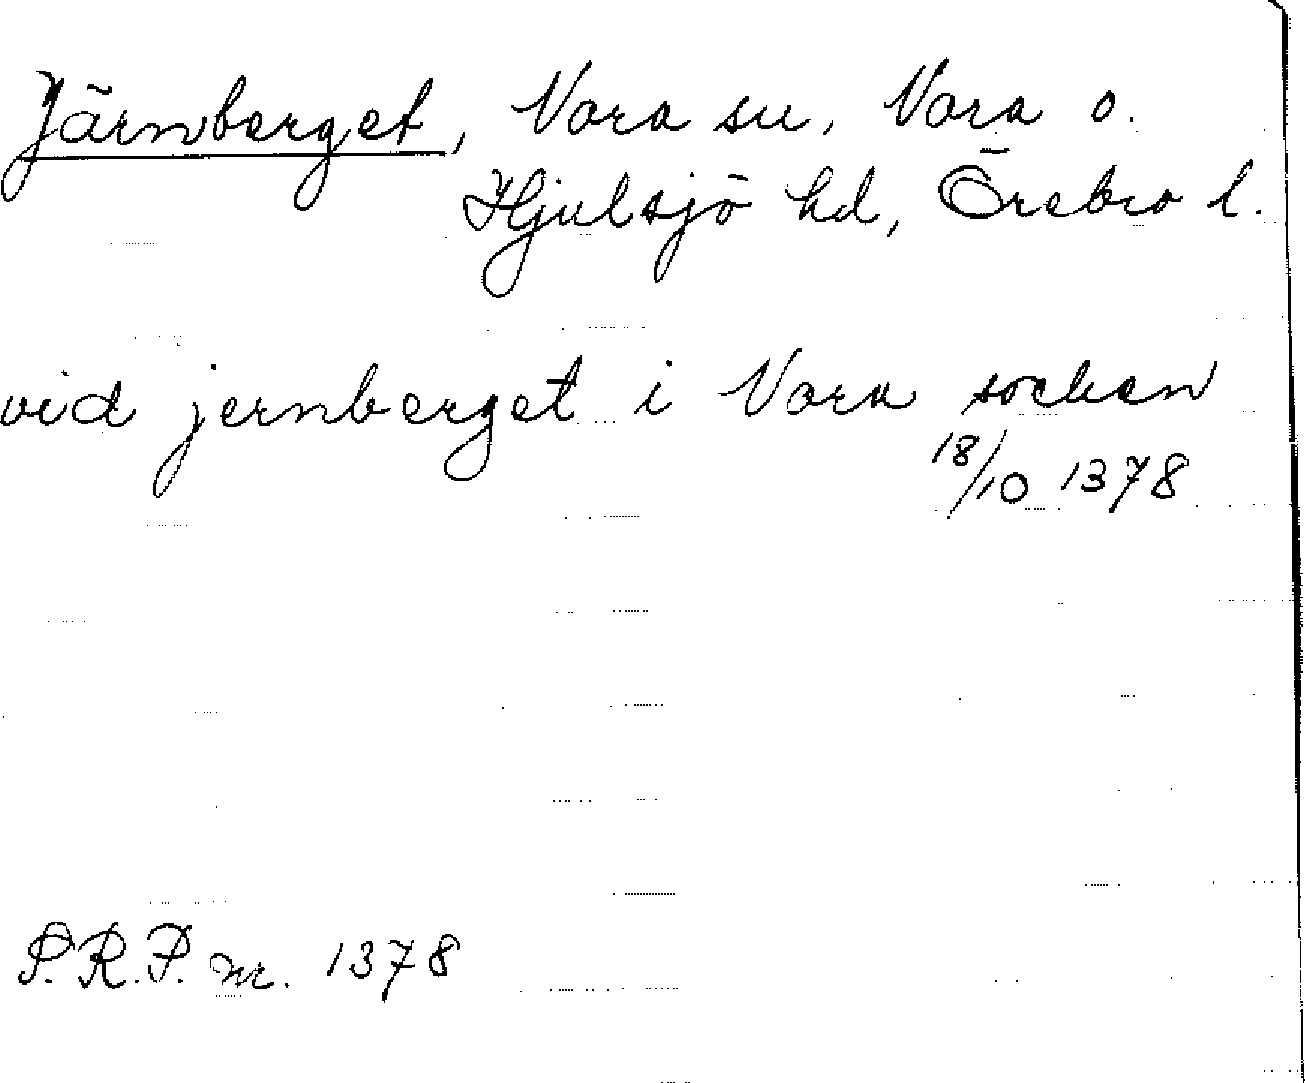 Järnberget, Nora sn, Nora o.
Hjulsjö hd, Örebro l.
vid jernberget i Nora socken
18/10 1378
S.R.P. nr. 1378